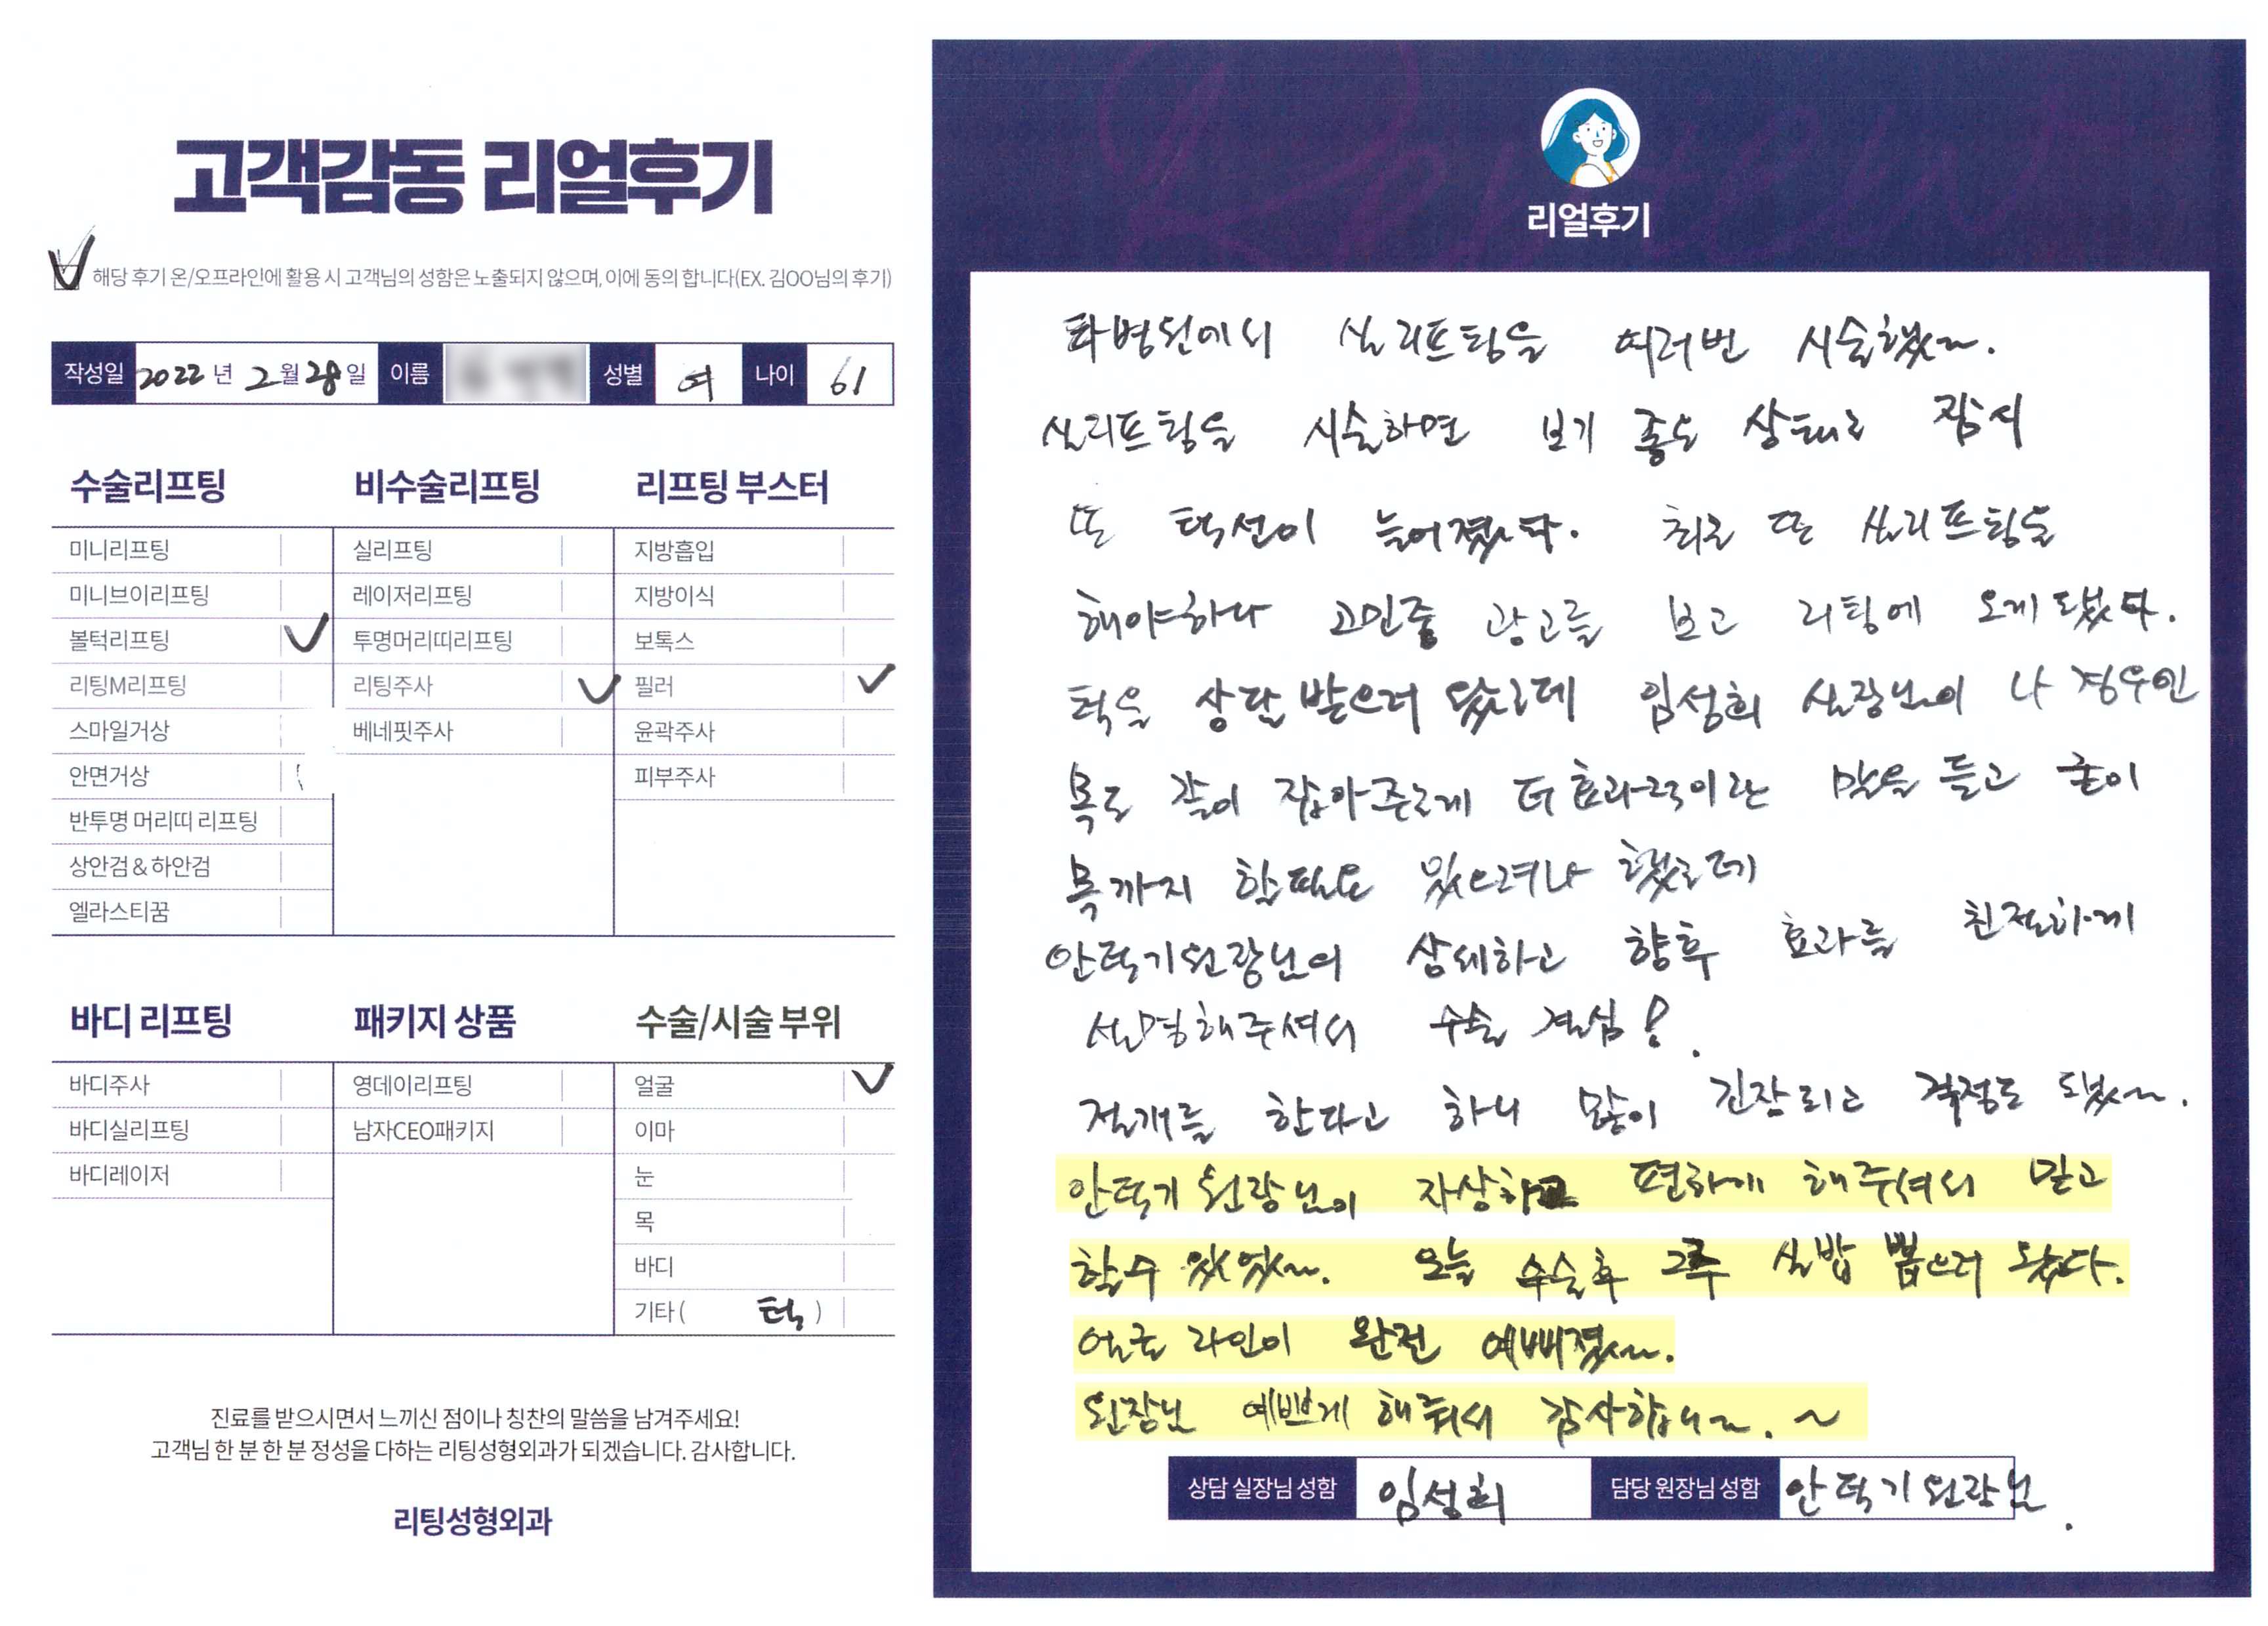 고객감동 리얼후기
해당 후기 온/오프라인에 활용 시 고객님의 성함은 노출되지 않으며, 이에 동의 합니다(EX. 김OO님의 후기)
작성일 2022 년 2 월 28 일 이름 성별 여 나이 61
수술리프팅
미니리프팅
미니브이리프팅
볼턱리프팅
리팅M리프팅
스마일거상
안면거상
반투명 머리띠 리프팅
상안검 & 하안검
엘라스티꿈
비수술리프팅
실리프팅
레이저리프팅
투명머리띠리프팅
리팅주사
베네핏주사
리프팅 부스터
지방흡입
지방이식
보톡스
필러
윤곽주사
피부주사
바디 리프팅
바디주사
바디실리프팅
바디레이저
패키지 상품
영데이리프팅
남자CEO패키지
수술/시술 부위
얼굴
이마
눈
목
바디
기타 ( 턱 )
진료를 받으시면서 느끼신 점이나 칭찬의 말씀을 남겨주세요!
고객님 한 분 한 분 정성을 다하는 리팅성형외과가 되겠습니다. 감사합니다.
리팅성형외과
리얼후기
타병원에서 실리프팅을 여러번 시술했다.
실리프팅을 시술하면 보기 좋은 상태로 잠시
또 턱선이 늘어졌다. 최근 또 실리프팅을
해야하나 고민중 광고를 보고 리팅에 오게 됐다.
턱을 상담 받으러 왔는데 임성희 실장님이 나 경우인
목도 같이 잡아주는게 더 효과적이란 말을 듣고 굳이
목까지 할필요 있으려나 했는데
안덕기원장님의 상세하고 향후 효과를 친절하게
설명해주셔서 수술 결심!
절개를 한다고 하니 많이 긴장되고 걱정도 됐다.
안덕기 원장님이 자상하고 편하게 해주셔서 믿고
할수 있었다. 오늘 수술후 2주 실밥 뽑으러 왔다.
얼굴 라인이 완전 예뻐졌다.
원장님 예쁘게 해줘서 감사합니다. ~
상담 실장님 성함 임성희 담당 원장님 성함 안덕기 원장님.